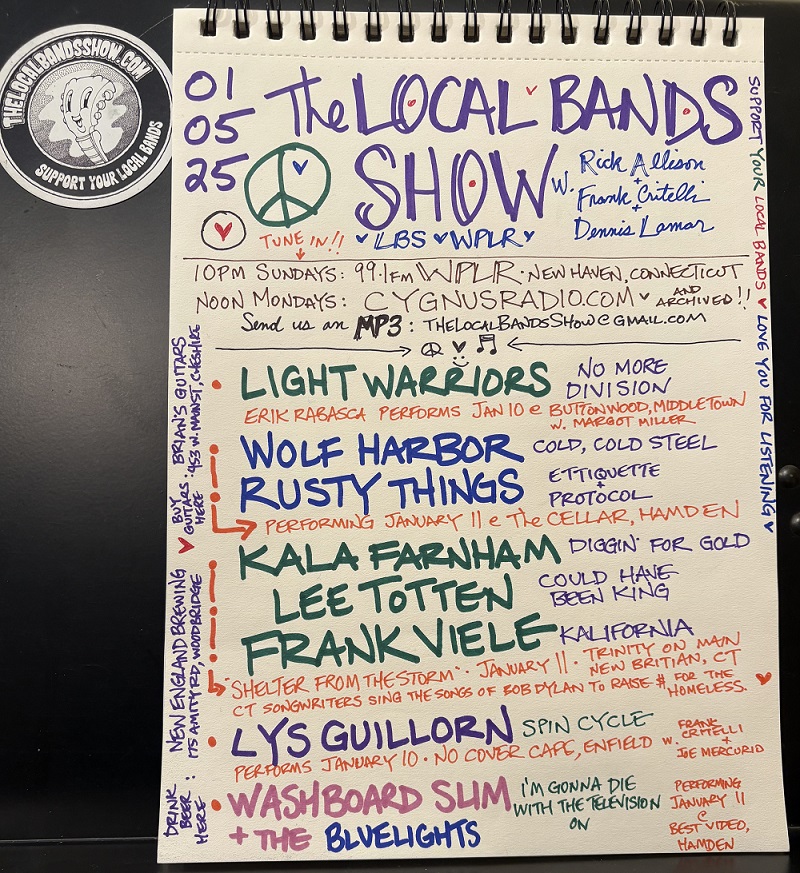 THELOCALBANDSSHOW.COM
SUPPORT YOUR LOCAL BANDS
01
05
25
The LOCAL BANDS
SHOW
W. Rick Allison
+
Frank Critelli
+
Dennis Lamar
TUNE IN!!
LBS WPLR
10PM SUNDAYS: 99.1FM WPLR · NEW HAVEN, CONNECTICUT
NOON MONDAYS: CYGNUSRADIO.COM AND
ARCHIVED!!
Send us an MP3: THELOCALBANDSSHOW@GMAIL.COM
• LIGHT WARRIORS NO MORE
DIVISION
ERIK RABASCA PERFORMS JAN 10 @ BUTTONWOOD, MIDDLETOWN
W. MARGOT MILLER
• WOLF HARBOR COLD, COLD STEEL
• RUSTY THINGS ETTIQUETTE
+
PROTOCOL
PERFORMING JANUARY 11 @ The CELLAR, HAMDEN
• KALA FARNHAM DIGGIN' FOR GOLD
• LEE TOTTEN COULD HAVE
BEEN KING
• FRANK VIELE KALIFORNIA
"SHELTER FROM THE STORM" · JANUARY 11 · TRINITY ON MAIN
NEW BRITIAN, CT
CT SONGWRITERS SING THE SONGS OF BOB DYLAN TO RAISE $ FOR THE
HOMELESS.
• LYS GUILLORN SPIN CYCLE
PERFORMS JANUARY 10 · NO COVER CAFE, ENFIELD W. FRANK
CRITELLI
+
JOE MERCURIO
• WASHBOARD SLIM
+ THE BLUELIGHTS
I'M GONNA DIE
WITH THE TELEVISION
ON
PERFORMING
JANUARY 11
@
BEST VIDEO,
HAMDEN
SUPPORT YOUR LOCAL BANDS LOVE YOU FOR LISTENING
BUY
GUITARS:
HERE
BRIAN'S GUITARS
953 W. MAIN ST, CHESHIRE
DRINK
BEER:
HERE
NEW ENGLAND BREWING
175 AMITY RD, WOODBRIDGE